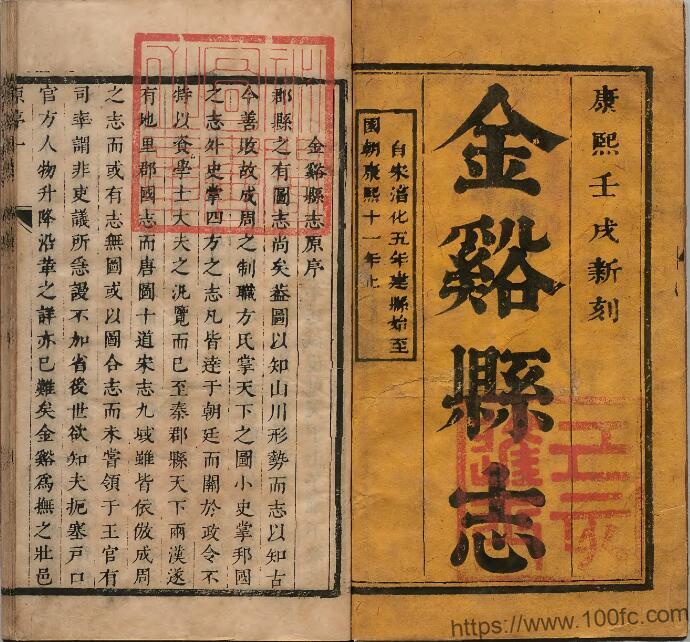 康熙壬戌新刻
金谿縣志
自宋淳化五年建縣始至
國朝康熙十一年止
金谿縣志原序
郡縣之有圖志尚矣葢圖以知山川形勢而志以知古
今善敗故成周之制職方氏掌天下之圖小史掌邦國
之志外史掌四方之志凡皆達于朝廷而關於政令不
特以資學士大夫之汎覽而已至秦郡縣天下兩漢遂
有地里郡國志而唐圖十道宋志九域雖皆依倣成周
之志而或有志無圖或以圖合志而未嘗領于王官有
司率謂非吏議所急謾不加省後世欲知夫扼塞戶口
官方人物升降沿革之詳亦已難矣金谿爲撫之壯邑
原序一
https://www.100fc.com